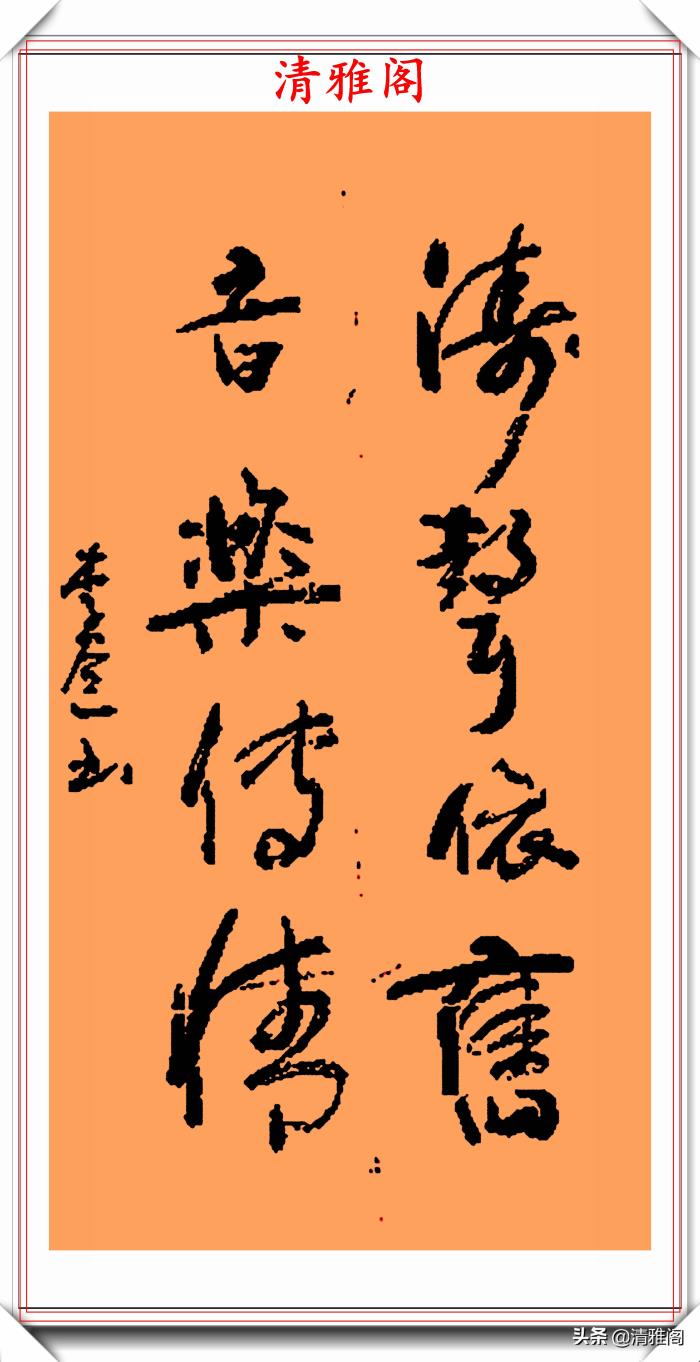 清雅阁
濤聲依舊
音樂傳情
头条 @清雅阁